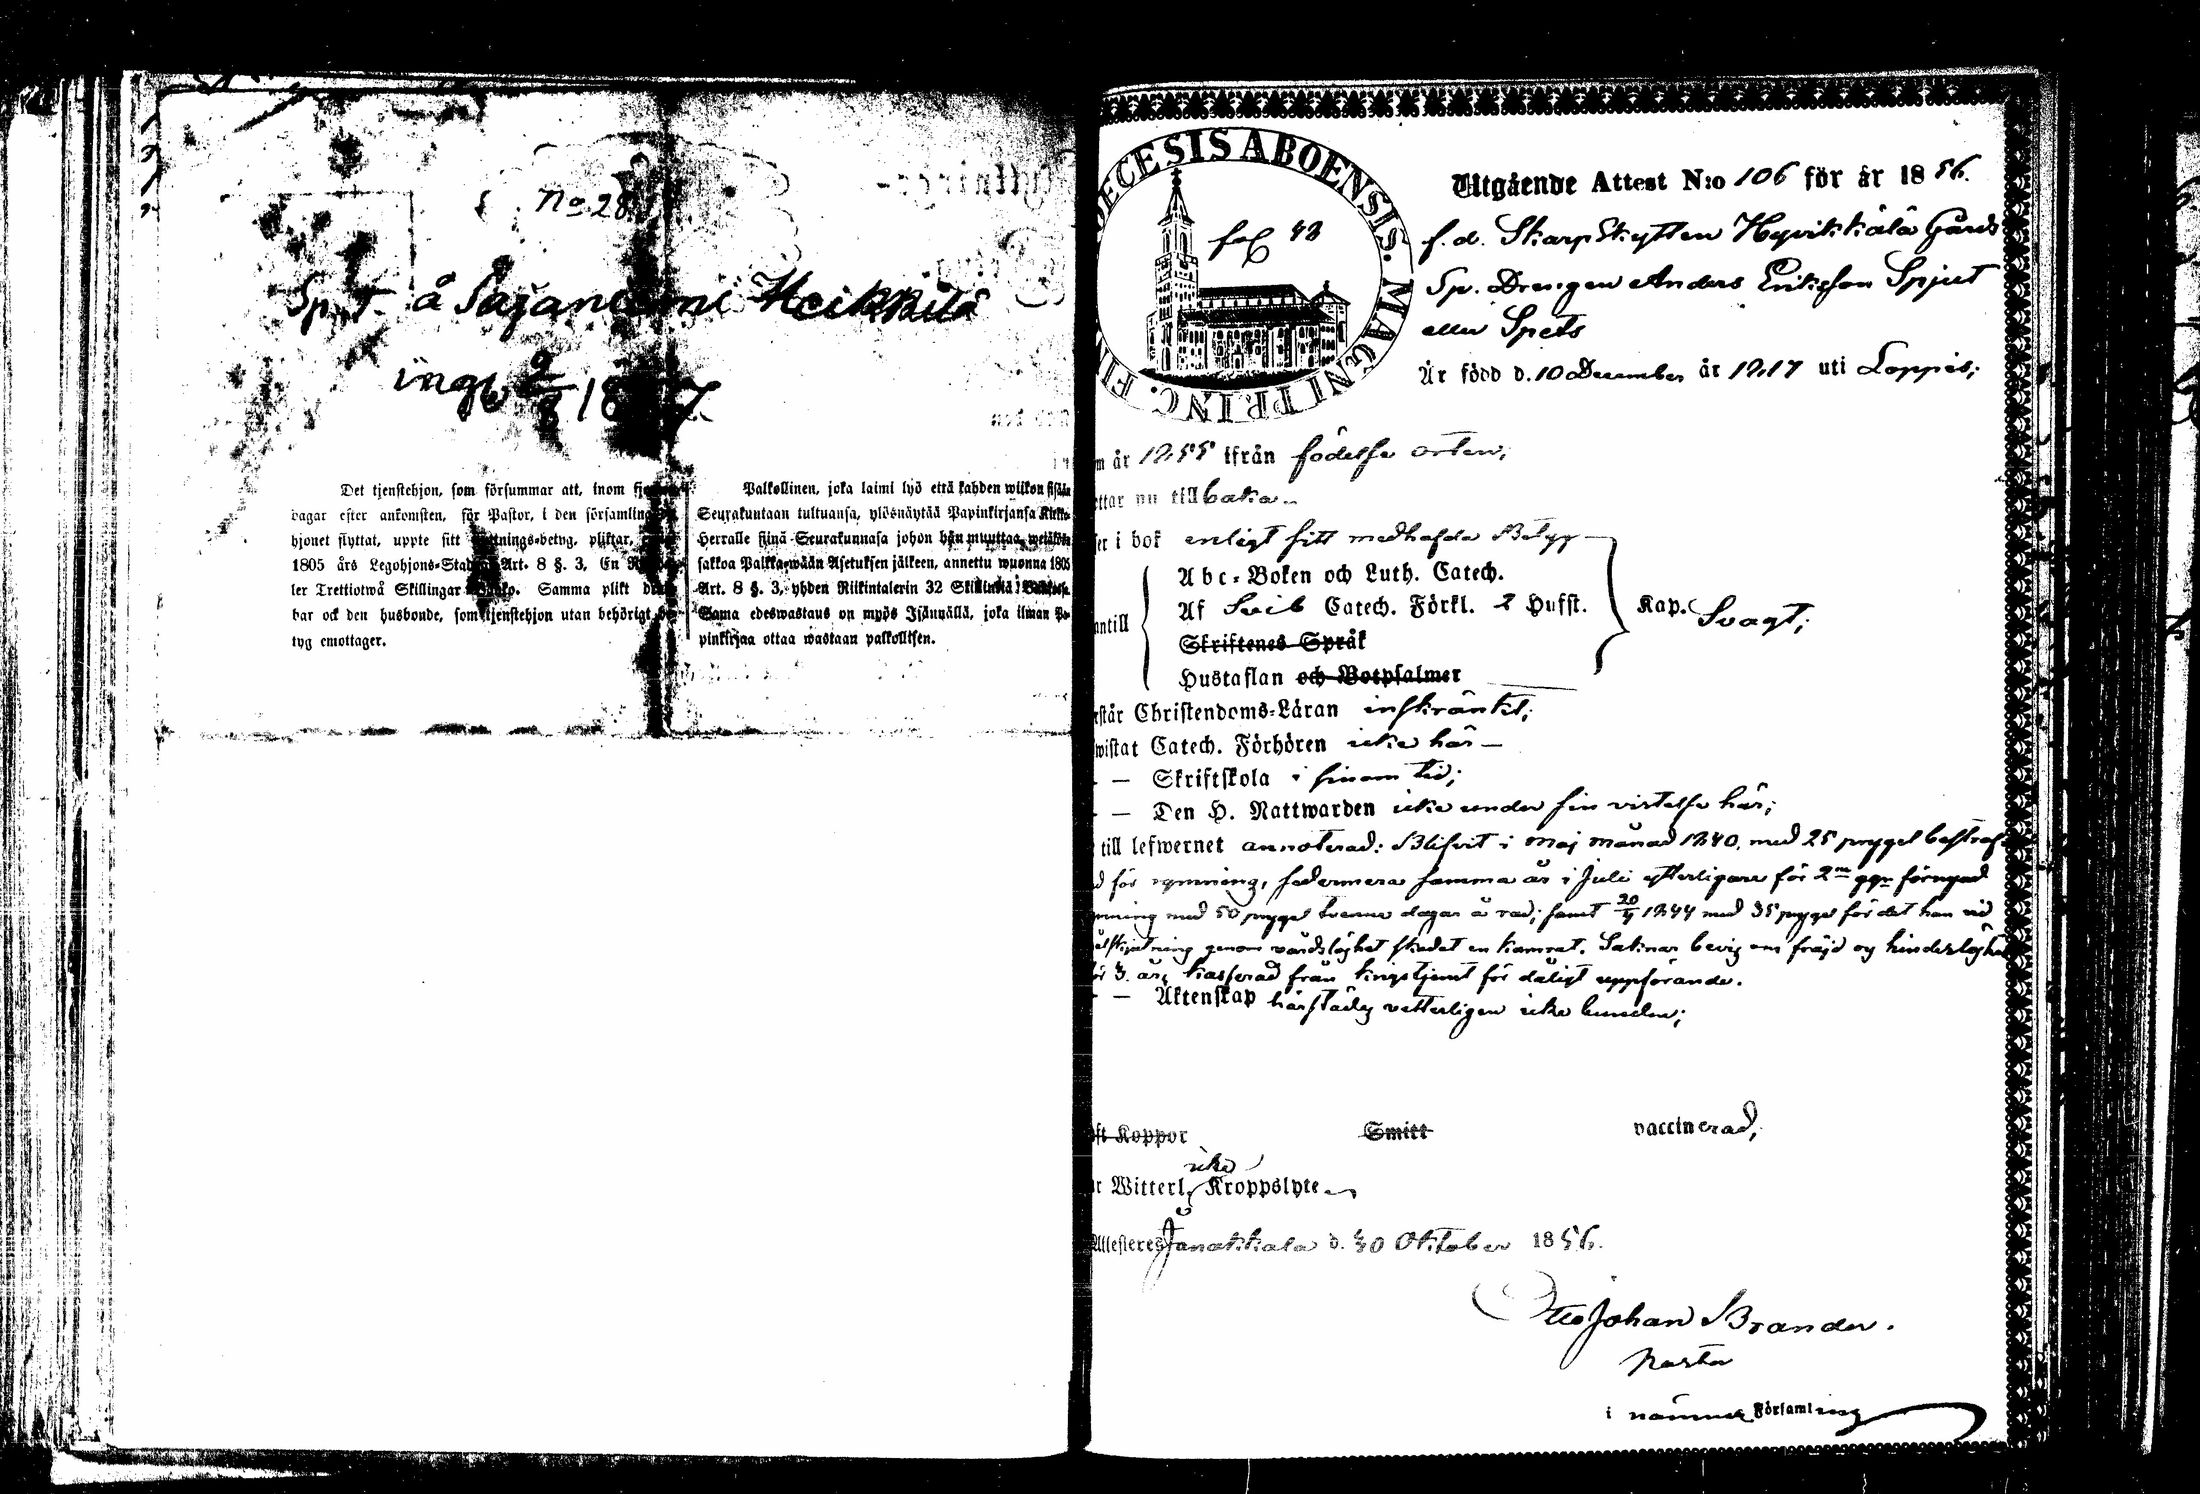 No 28
Sp. T. å Sajaniemi Heikkilä
ingb 2/8 1857
Det tjenstehjon, som försummar att, inom
dagar efter ankomsten, för Pastor, i den församling
hjonet flyttat, uppte sitt flyttnings-betyg, pliktar,
1805 års Legohjons-Stadga Art. 8 §. 3, En
ler Trettiotwå Skillingar Banko. Samma plikt
bar ock den husbonde, som tjenstehjon utan behörigt be-
tyg emottager.
Palkollinen, joka laimi lyö että kahden wiikon sisään
Seurakuntaan tultuansa, ylösnäytää Papinkirjansa Kirkko-
Herralle siinä Seurakunnasa johon hän muuttaa, wetäköön
sakkoa Palkka-wään Asetuksen jälkeen, annettu wuonna 1805
Art. 8 §. 3, yhden Riikintalerin 32 Skillinkiä Bankosa.
Sama edeswastaus on myös Isännällä, joka ilman Pa-
pinkirjaa ottaa wastaan palkollisen.
DIOECESIS ABOENSIS. MAGNI PRINC. FIN
fol 48
Utgående Attest N:o 106 för år 1856.
f. d. Skarpskytten Hyvikkälä Gårds
Sp. Drengen Anders Eriksson Spjut
eller Spets
Är född d. 10 December år 1817 uti Loppis;
m år 1855 ifrån födelse orten;
ttar nu tillbaka
er i bok enligt sitt medhafda Betyg
Abc-Boken och Luth. Catech.
antill Af Sveb Catech. Förkl. 2 Hufst. Kap. Svagt;
Skriftenes Språk
Hustaflan och Botpsalmer
rstår Christendoms-Läran inskränkt;
wistat Catech. Förhören icke här —
— Skriftskola i sinom tid;
— Den H. Nattwarden icke under sin vistelse här;
till lefwernet annoterad: Blifvit i Maj månad 1840, med 25 prygel bestraf-
d för rymning, sedermera samma år i Juli ytterligare för 2:n ggn förnyad
ymning med 50 prygel trenne dagar å rad; samt 20/4 1844 med 35 prygel för det han vid
målskjutning genom vårdslöshet skadat en kamrat. Saknar bevis om fräjd og hinderslöshet
ör 3. år; kasserad från krigstjenst för dåligt uppförande.
— Äktenskap härstädes vetterligen icke bunden;
ft Koppor Smitt vaccinerad;
icke
r Witterl. Kroppslyte
Attesteres Janakkala d. 30 Oktober 1856.
Otto Johan Brander.
Pastor
i nämnde Församling